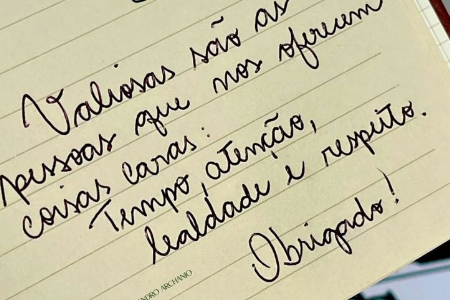 Valiosas são as
pessoas que nos oferecem
coisas caras:
Tempo, atenção,
lealdade e respeito.
Obrigado!
NDRO ARCHANJO